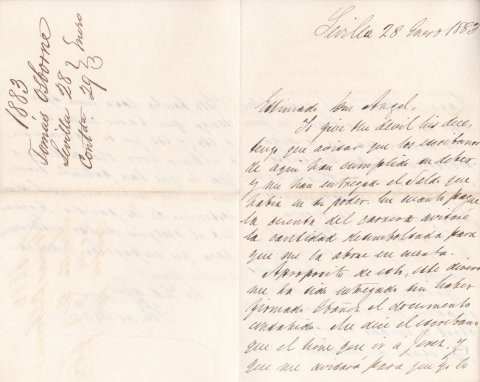 1883
Tomás Osborne
Sevilla 28 Enero
Contta. 29
Sevilla 28 Enero 1883
Estimado Don Angel,
To give the devil his dues,
tengo que avisar que los escribanos
de aqui han cumplido su deber
y me han entregado el saldo que
habia en su poder. En cuanto pague
la cuenta del carrera avisaré
la cantidad desembolsada para
que me la abone en cuenta.
Aproposito de esto, este dinero
me ha sido entregado sin haber
firmado el documento
consabido. Me dice el escribano
que el tiene que ir a Jerez, y
que me avisará para que yo lo